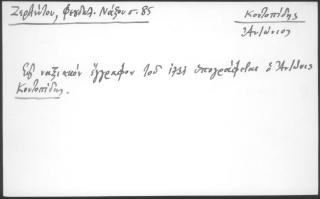 Ζερλέντου, Φεουδαλ. Νάξου σ. 85
Κοντοπίδης
Ἀντώνιος
Εἰς ναξιακόν ἔγγραφον τοῦ 1731 ὑπογράφεται ὁ Ἀντώνιος
Κοντοπίδης.